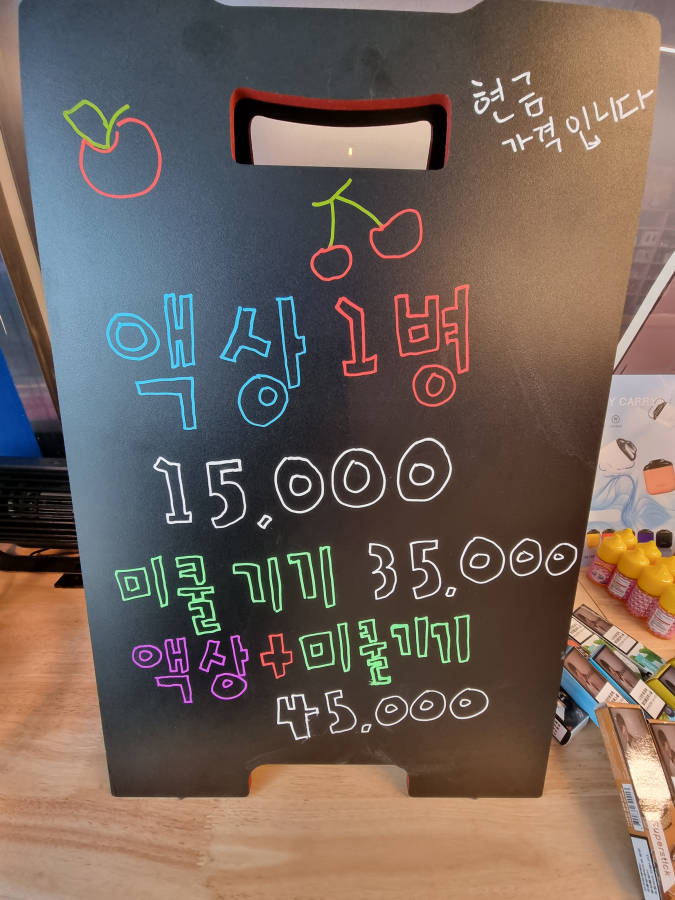 현금
가격입니다
액상 1병
15,000
미쿨 기기 35.000
액상+미쿨기기
45.000
Y CARRY
superstick